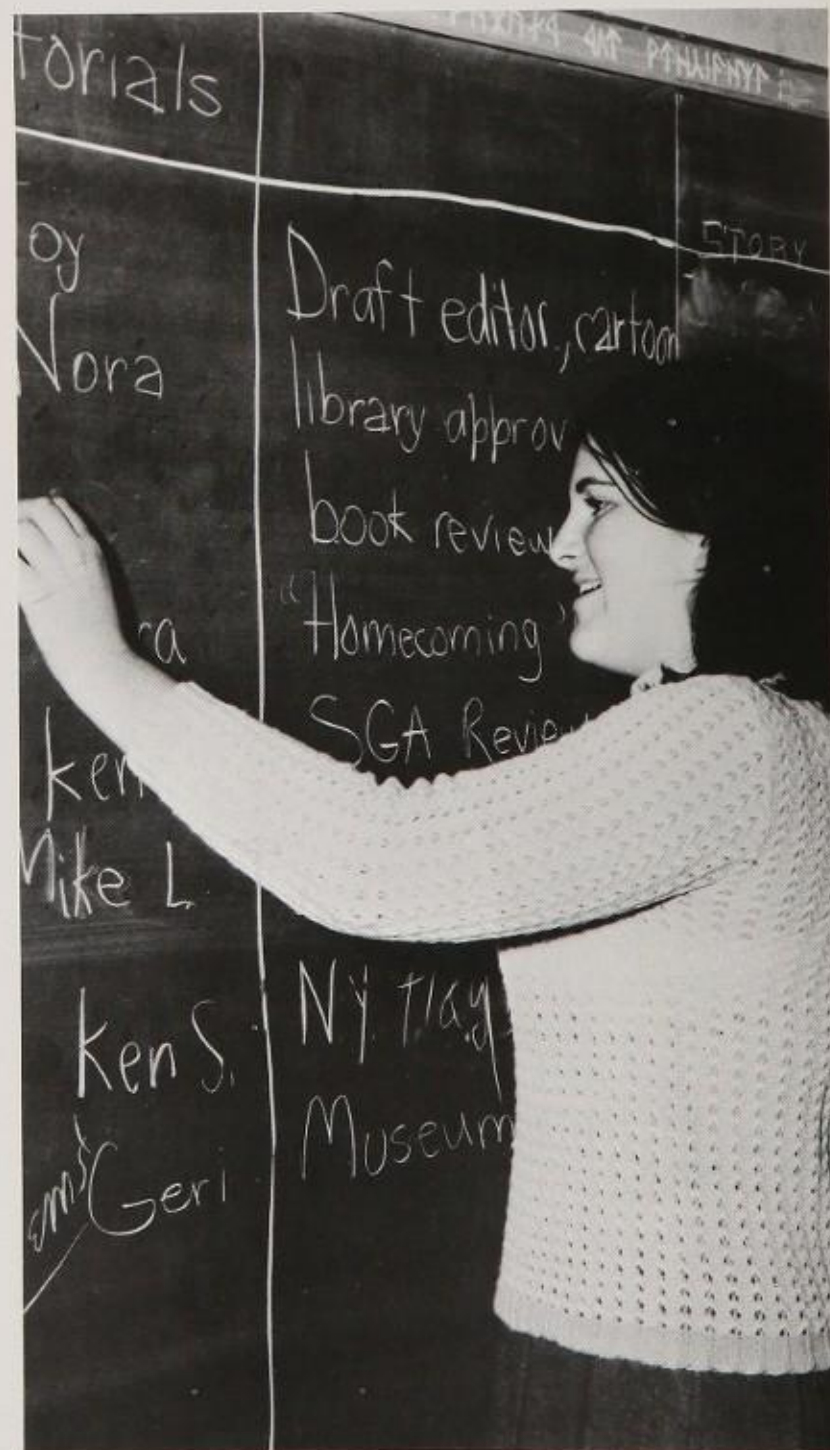 torials
STORY
oy
Nora
ra
Ken
Mike L.
Ken S.
and Geri
Draft editor, cartoon
library approv
book review
"Homecoming"
SGA Review
NY
Museum